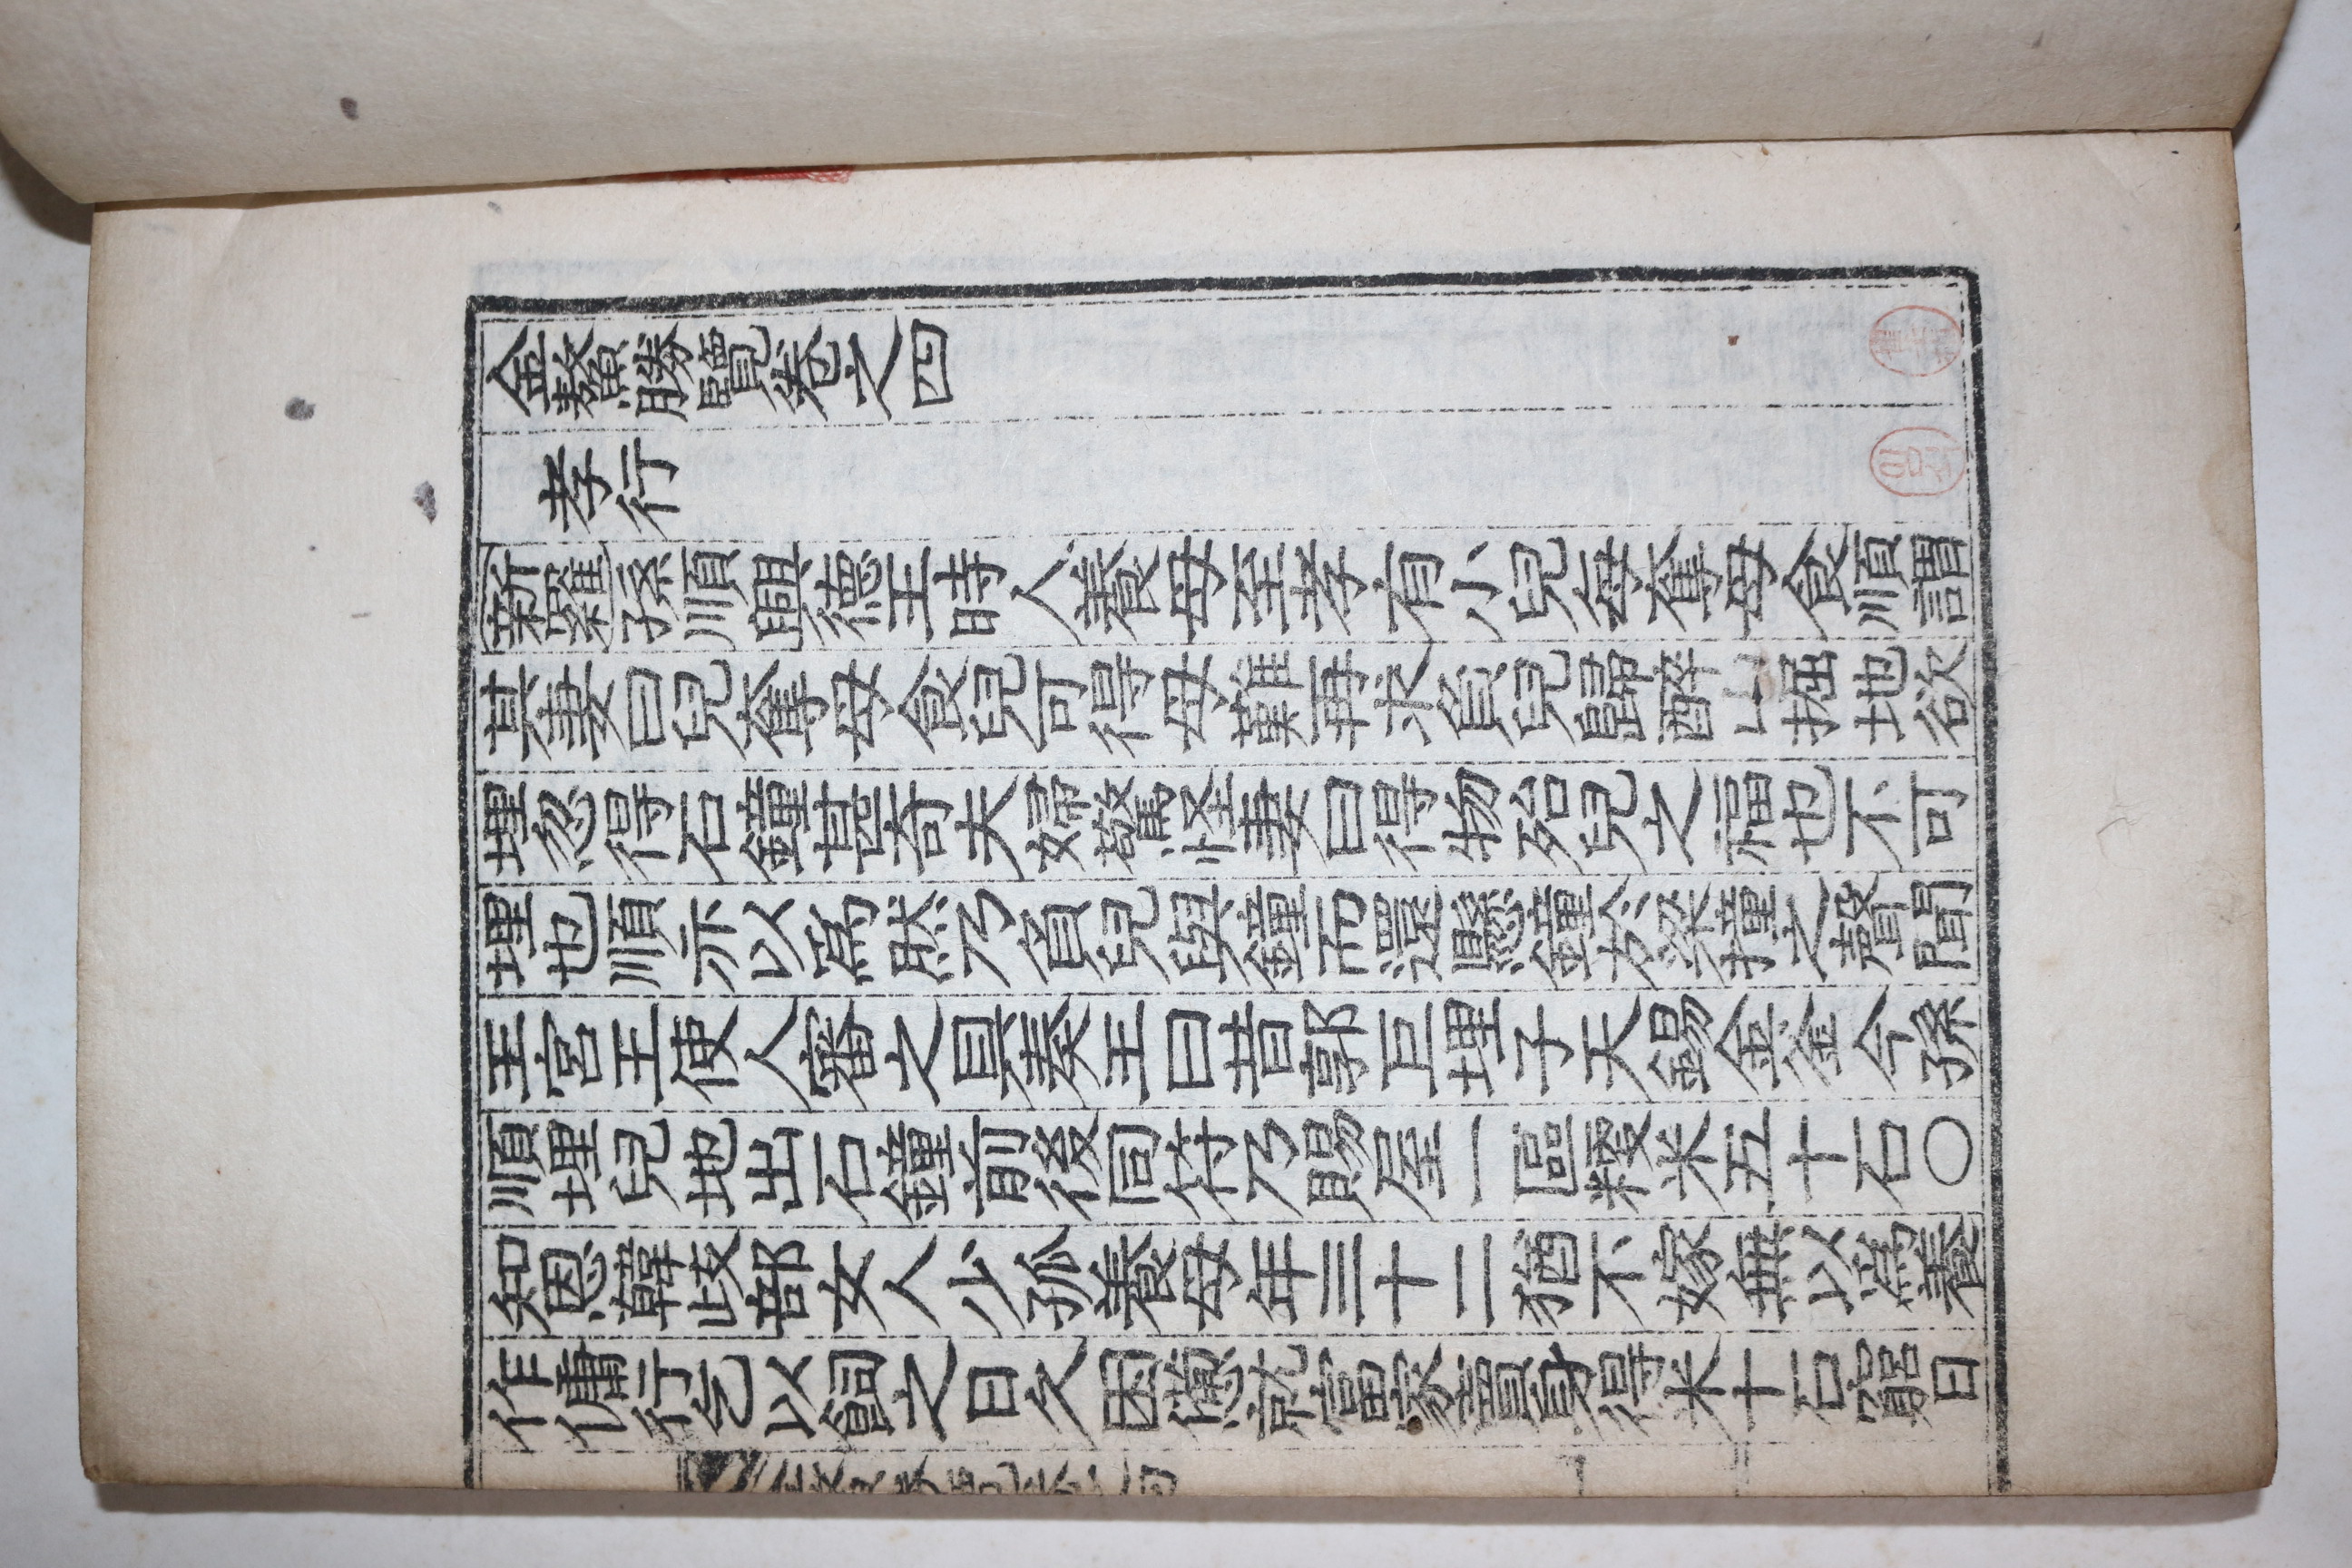 金鰲勝覽卷之四
孝行
新羅孫順興德王時人養母至孝有小兒每奪母食順謂
其妻曰兒奪母食兒可得母難再求負兒歸醉山掘地欲
埋忽得石鐘甚奇夫婦驚怪妻曰得物殆兒之福也不可
埋也順亦以爲然乃負兒與鐘而還懸鐘於梁撞之聲聞
王宮王使人審之具奏王曰昔郭巨埋子天賜金釜今孫
順埋兒地出石鐘前後同符乃賜屋一區粳米五十石〇
知恩韓歧部女人少孤養母年三十二猶不嫁無以爲養
作傭行乞以飼之日久困憊就富家賣身得米十石窮日